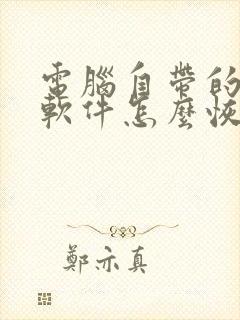 電腦自帶的
軟件怎麼恢
鄭亦真